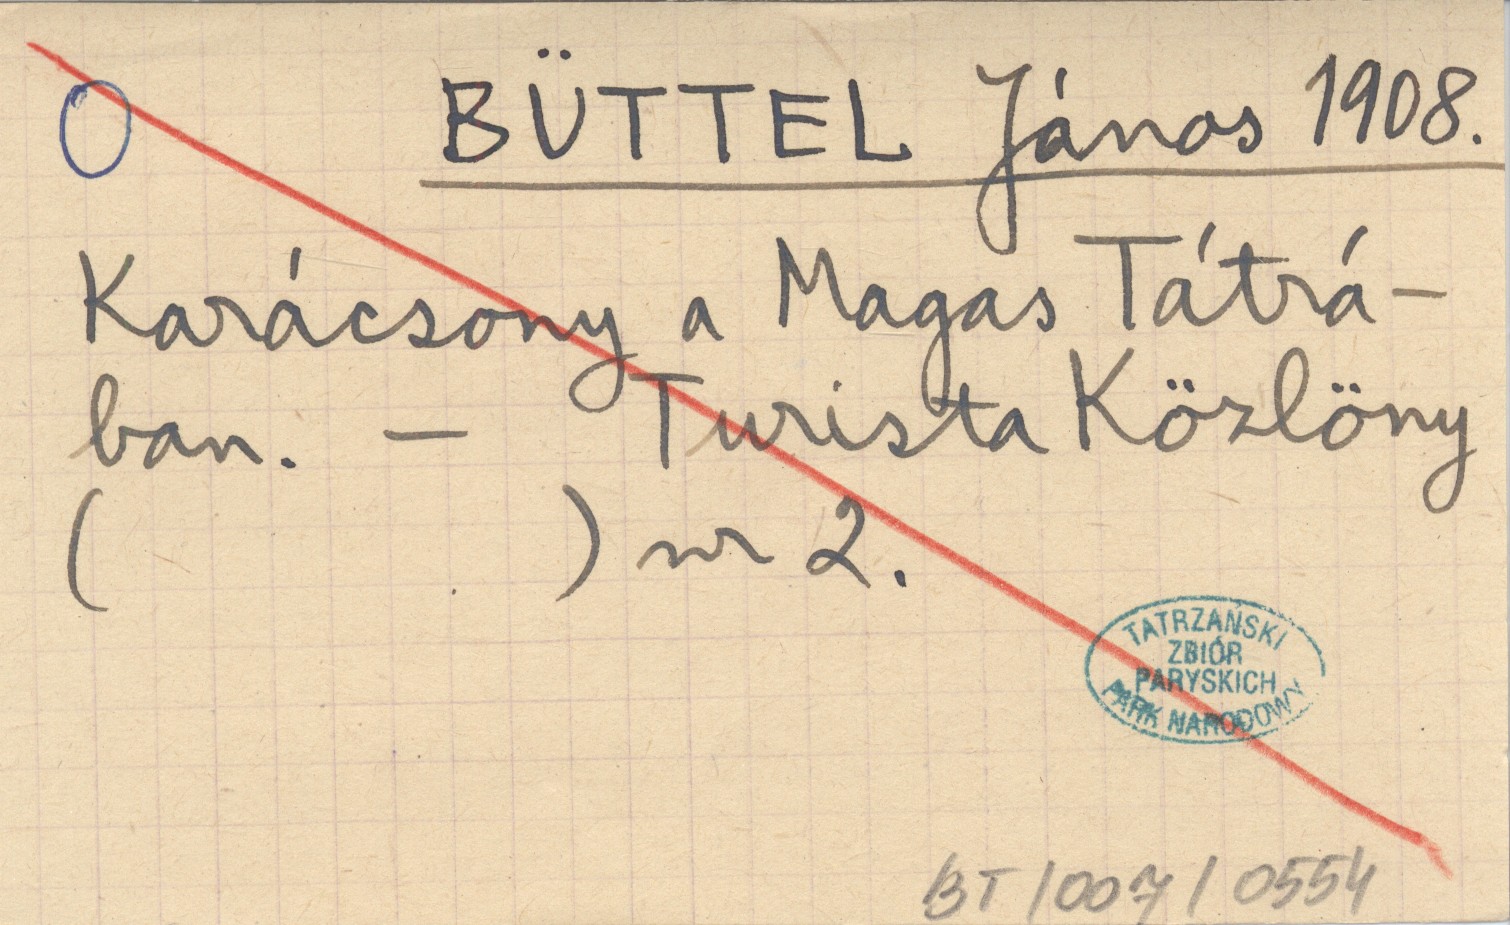 BÜTTEL János 1908.
Karácsony a Magas Tátrá-
ban. — Turista Közlöny
( ) nr 2.
TATRZAŃSKI
ZBIÓR
PARYSKICH
PARK NARODOWY
BT/007/0554